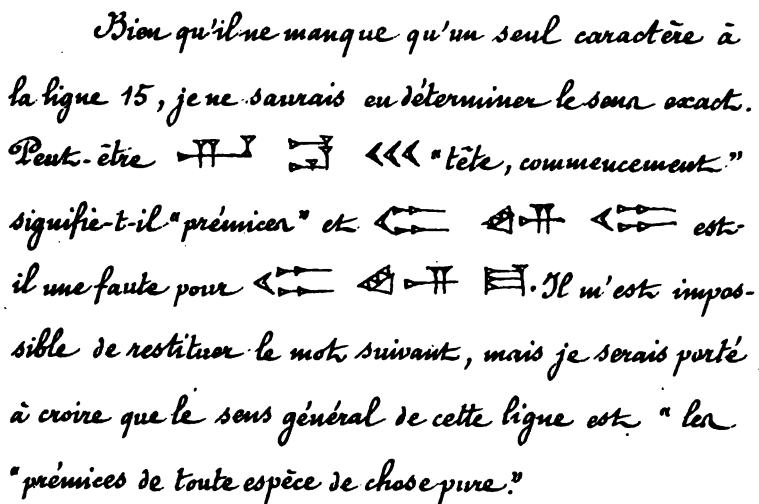 Bien qu'il ne manque qu'un seul caractère à
la ligne 15, je ne saurais en déterminer le sens exact.
Peut-être 𒌍 "tête, commencement"
signifie-t-il "prémices" et est-
il une faute pour . Il m'est impos-
sible de restituer le mot suivant, mais je serais porté
à croire que le sens général de cette ligne est " les
"prémices de toute espèce de chose pure."